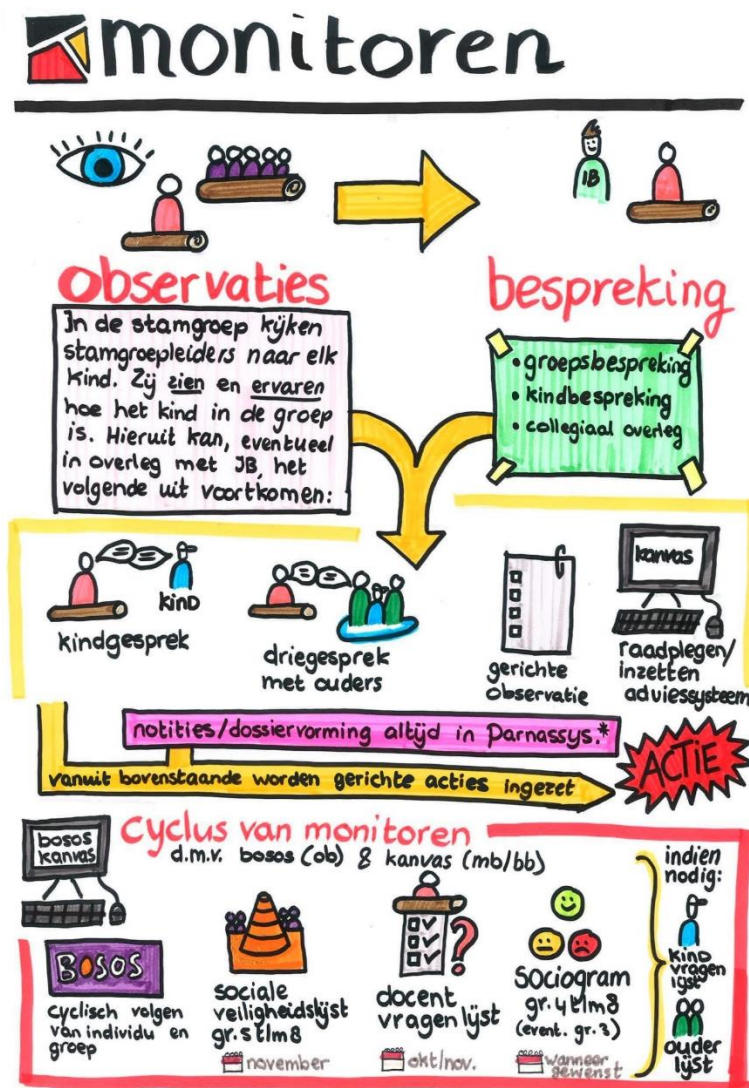 monitoren
IB
observaties
bespreking
In de stamgroep kijken
stamgroepleiders naar elk
kind. Zij zien en ervaren
hoe het kind in de groep
is. Hieruit kan, eventueel
in overleg met IB, het
volgende uit voortkomen:
• groepsbespreking
• kindbespreking
• collegiaal overleg
kind
kindgesprek
driegesprek
met ouders
gerichte
observatie
kanvas
raadplegen/
inzetten
adviessysteem
notities/dossiervorming altijd in Parnassys.*
vanuit bovenstaande worden gerichte acties ingezet
ACTIE
cyclus van monitoren
d.m.v. bosos (ob) & kanvas (mb/bb)
bosos
kanvas
BOSOS
cyclisch volgen
van individu en
groep
sociale
veiligheidslijst
gr. 5 t/m 8
november
?
docent
vragenlijst
okt/nov.
sociogram
gr. 4 t/m 8
(event. gr. 3)
wanneer
gewenst
indien
nodig:
kind
vragen
lijst
ouder
lijst